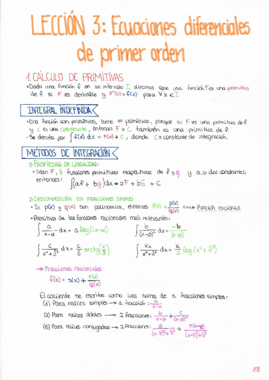 LECCIÓN 3: Ecuaciones diferenciales
de primer orden
1. CÁLCULO DE PRIMITIVAS
• Dada una función f en un intervalo I, decimos que una función F es una primitiva
de f si F es derivable y F'(x) = f(x) para ∀x ∈ I.
INTEGRAL INDEFINIDA
• Una función con primitivas, tiene ∞ primitivas, porque si F es una primitiva de f
y c es una constante, entonces F + C también es una primitiva de f.
• Se denota por ∫f(x)dx = F(x) + C, donde C = constante de integración.
MÉTODOS DE INTEGRACIÓN
1) PROPIEDAD DE LINEALIDAD:
• Sean F, G funciones primitivas respectivas de f y g y a, b dos constantes,
entonces: ∫(af + bg)dx = aF + bG + C
2) DESCOMPOSICIÓN EN FRACCIONES SIMPLES
• Si p(x) y q(x) son polinomios, entonces f(x) = p(x)/q(x) → Función racional
• Primitiva de las funciones racionales más relevantes:
∫ a/(x-α) dx = a log(x-α)
→ Fracciones racionales
f(x) = s(x) + r(x)/q(x)
El cociente se escribe como una suma de 3 fracciones simples:
(1) Para raíces simples → 1 fracción:
(2) Para raíces dobles → 2 fracciones:
(3) Para raíces conjugadas → 2 fracciones: